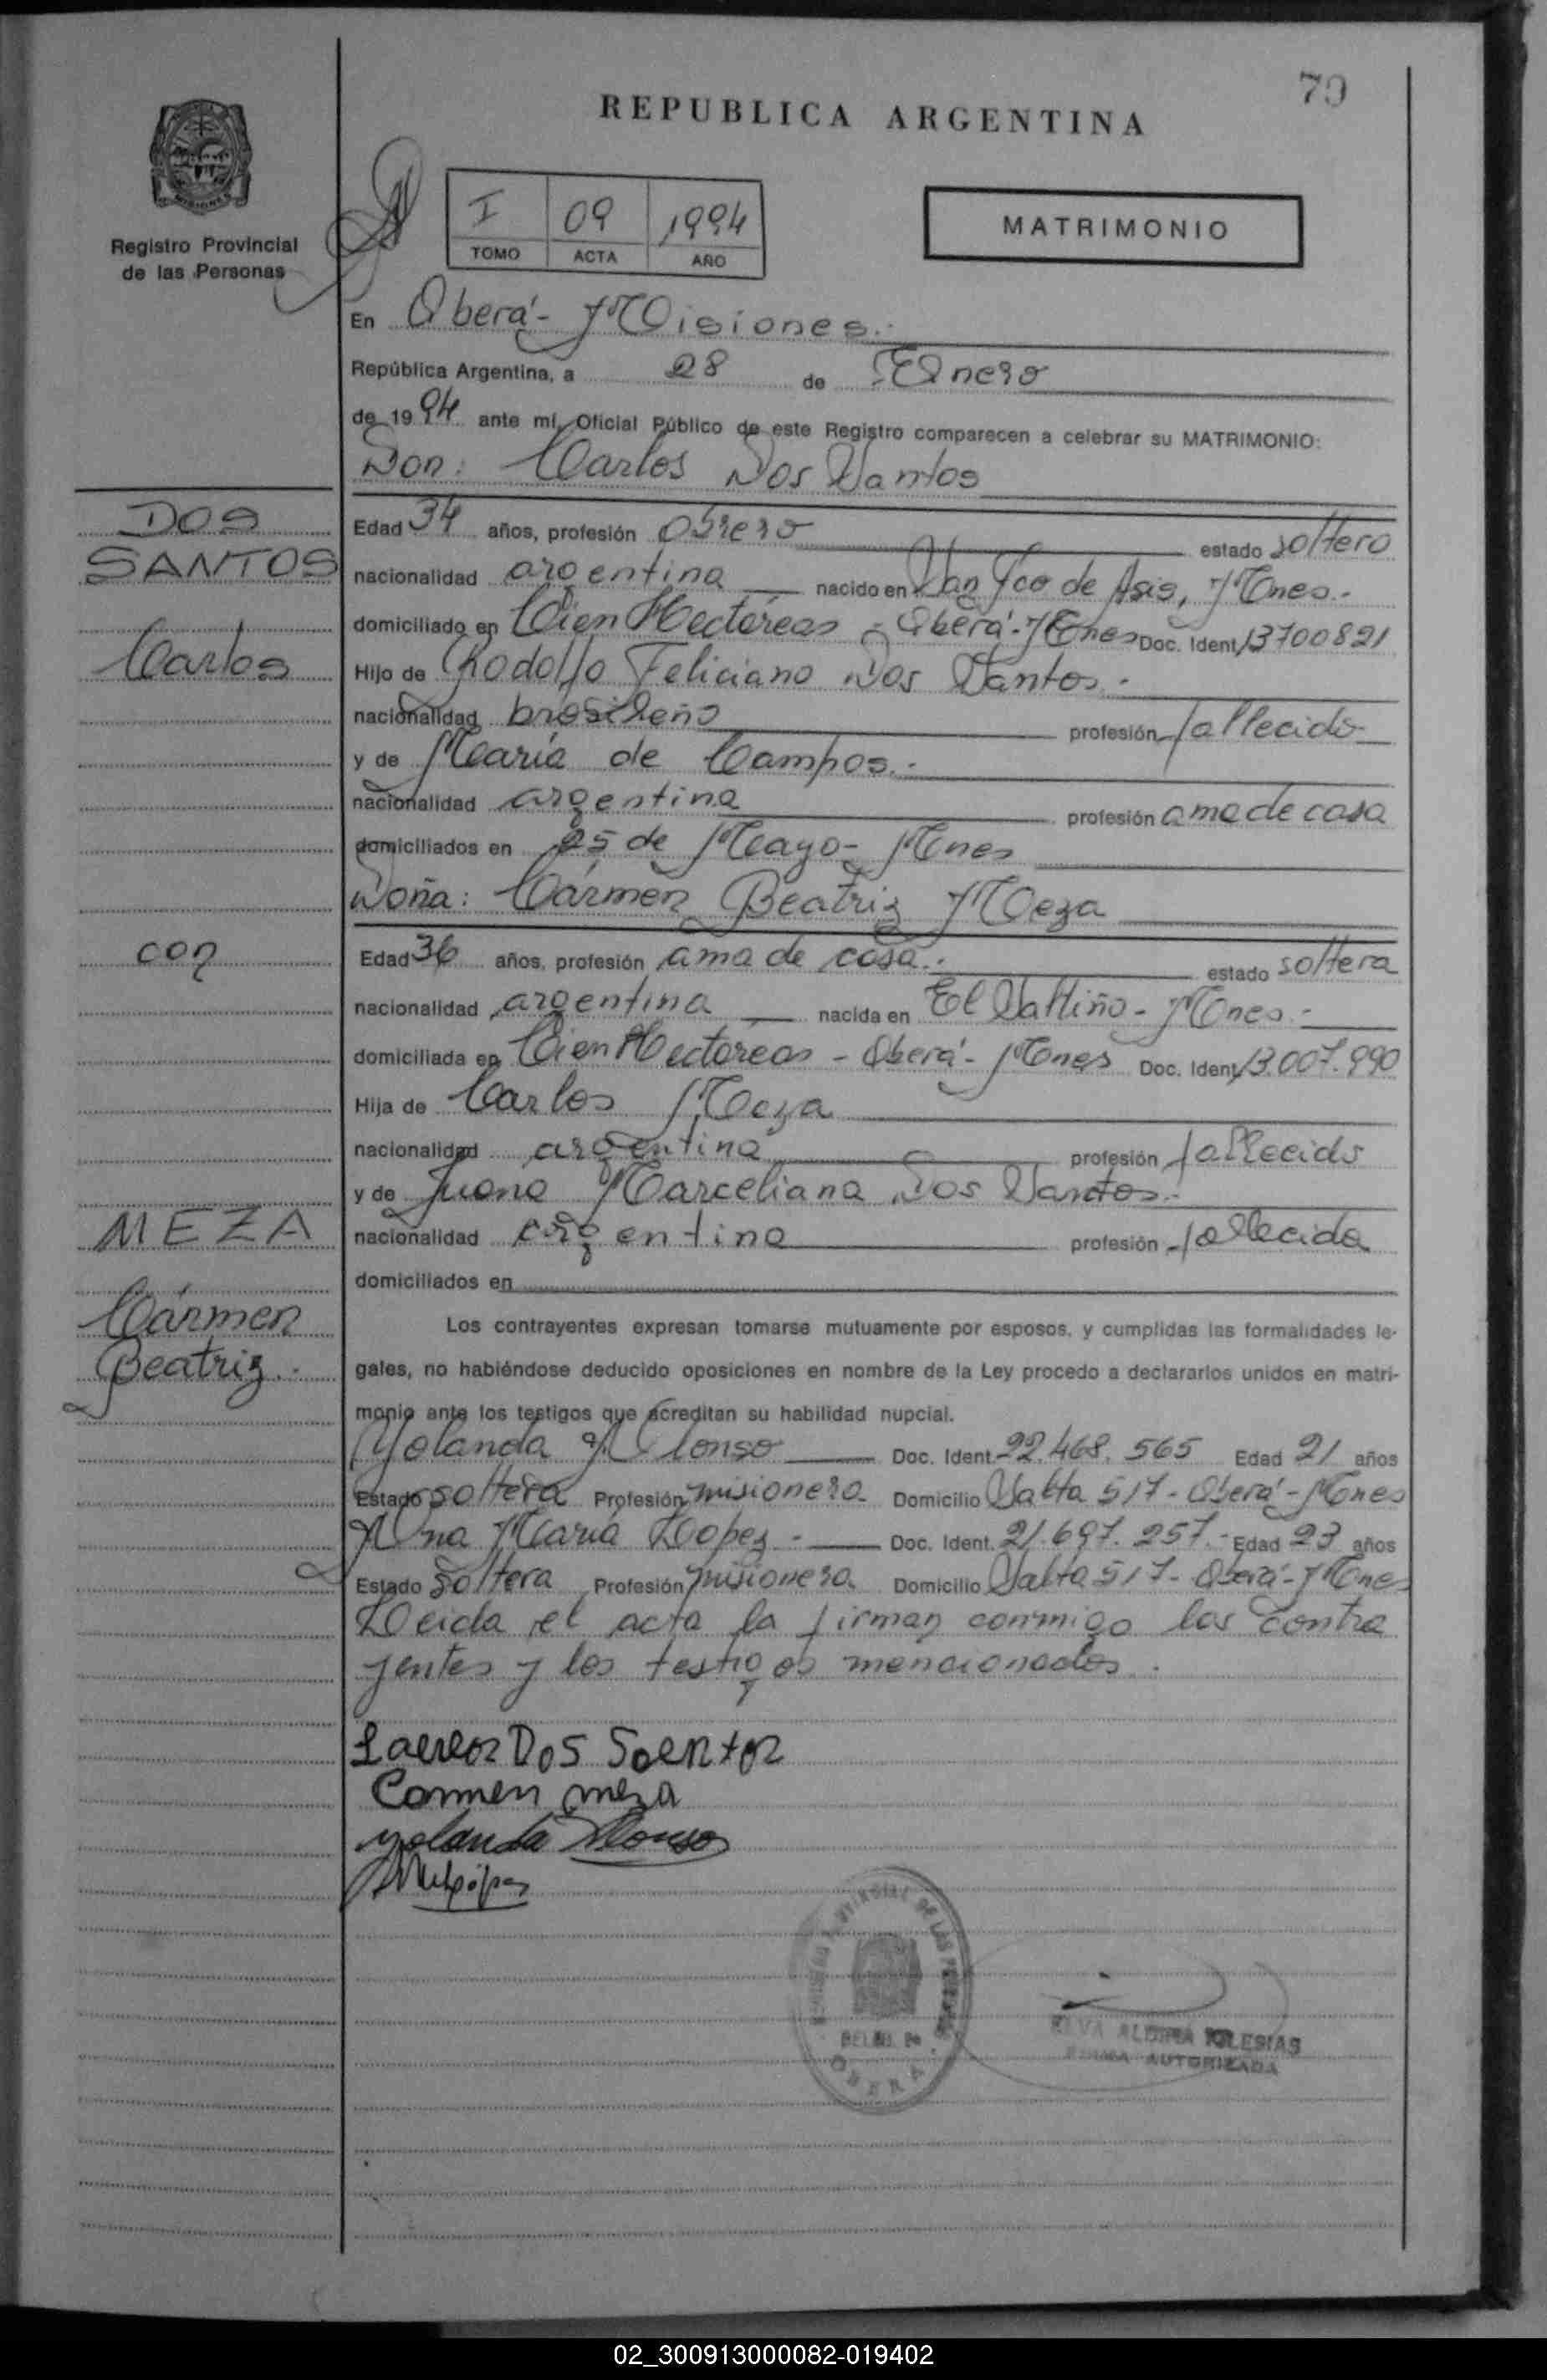 79
REPUBLICA ARGENTINA
Registro Provincial
de las Personas
I 09 1994
TOMO ACTA AÑO
MATRIMONIO
En Oberá - Misiones.-
República Argentina, a 28 de Enero
de 1994 ante mí, Oficial Público de este Registro comparecen a celebrar su MATRIMONIO:
Don: Carlos Dos Santos
DOS
SANTOS
Carlos
Edad 34 años, profesión obrero estado soltero
nacionalidad argentina nacido en San Fco de Asis, Mnes.-
domiciliado en Cien Hectáreas - Oberá - Mnes Doc. Ident. 13700821
Hijo de Rodolfo Feliciano Dos Santos.-
nacionalidad brasileño profesión fallecido
y de María de Campos.-
nacionalidad argentina profesión ama de casa
domiciliados en 25 de Mayo - Mnes
Doña: Cármen Beatriz Meza
con
Edad 36 años, profesión ama de casa.- estado soltera
nacionalidad argentina nacida en El Saltiño - Mnes.-
domiciliada en Cien Hectáreas - Oberá - Mnes Doc. Ident. 13.007.990
Hija de Carlos Meza
nacionalidad argentina profesión fallecido
y de Juana Marceliana Dos Santos.-
MEZA
Cármen
Beatriz.-
nacionalidad argentina profesión fallecida
domiciliados en
Los contrayentes expresan tomarse mutuamente por esposos, y cumplidas las formalidades le-
gales, no habiéndose deducido oposiciones en nombre de la Ley procedo a declararlos unidos en matri-
monio ante los testigos que acreditan su habilidad nupcial.
Yolanda Alonso Doc. Ident. 22.468.565 Edad 21 años
Estado soltera Profesión misionera Domicilio Salta 517 - Oberá - Mnes
Ana María Lopez.- Doc. Ident. 21.697.257.- Edad 23 años
Estado soltera Profesión misionera Domicilio Salta 517 - Oberá - Mnes
Leida el acta la firman conmigo los contra
yentes y los testigos mencionados.
DOS
Carmen meza
Yolanda Alonso
OBERA
IGLESIAS
FIRMA AUTORIZADA
02_300913000082-019402